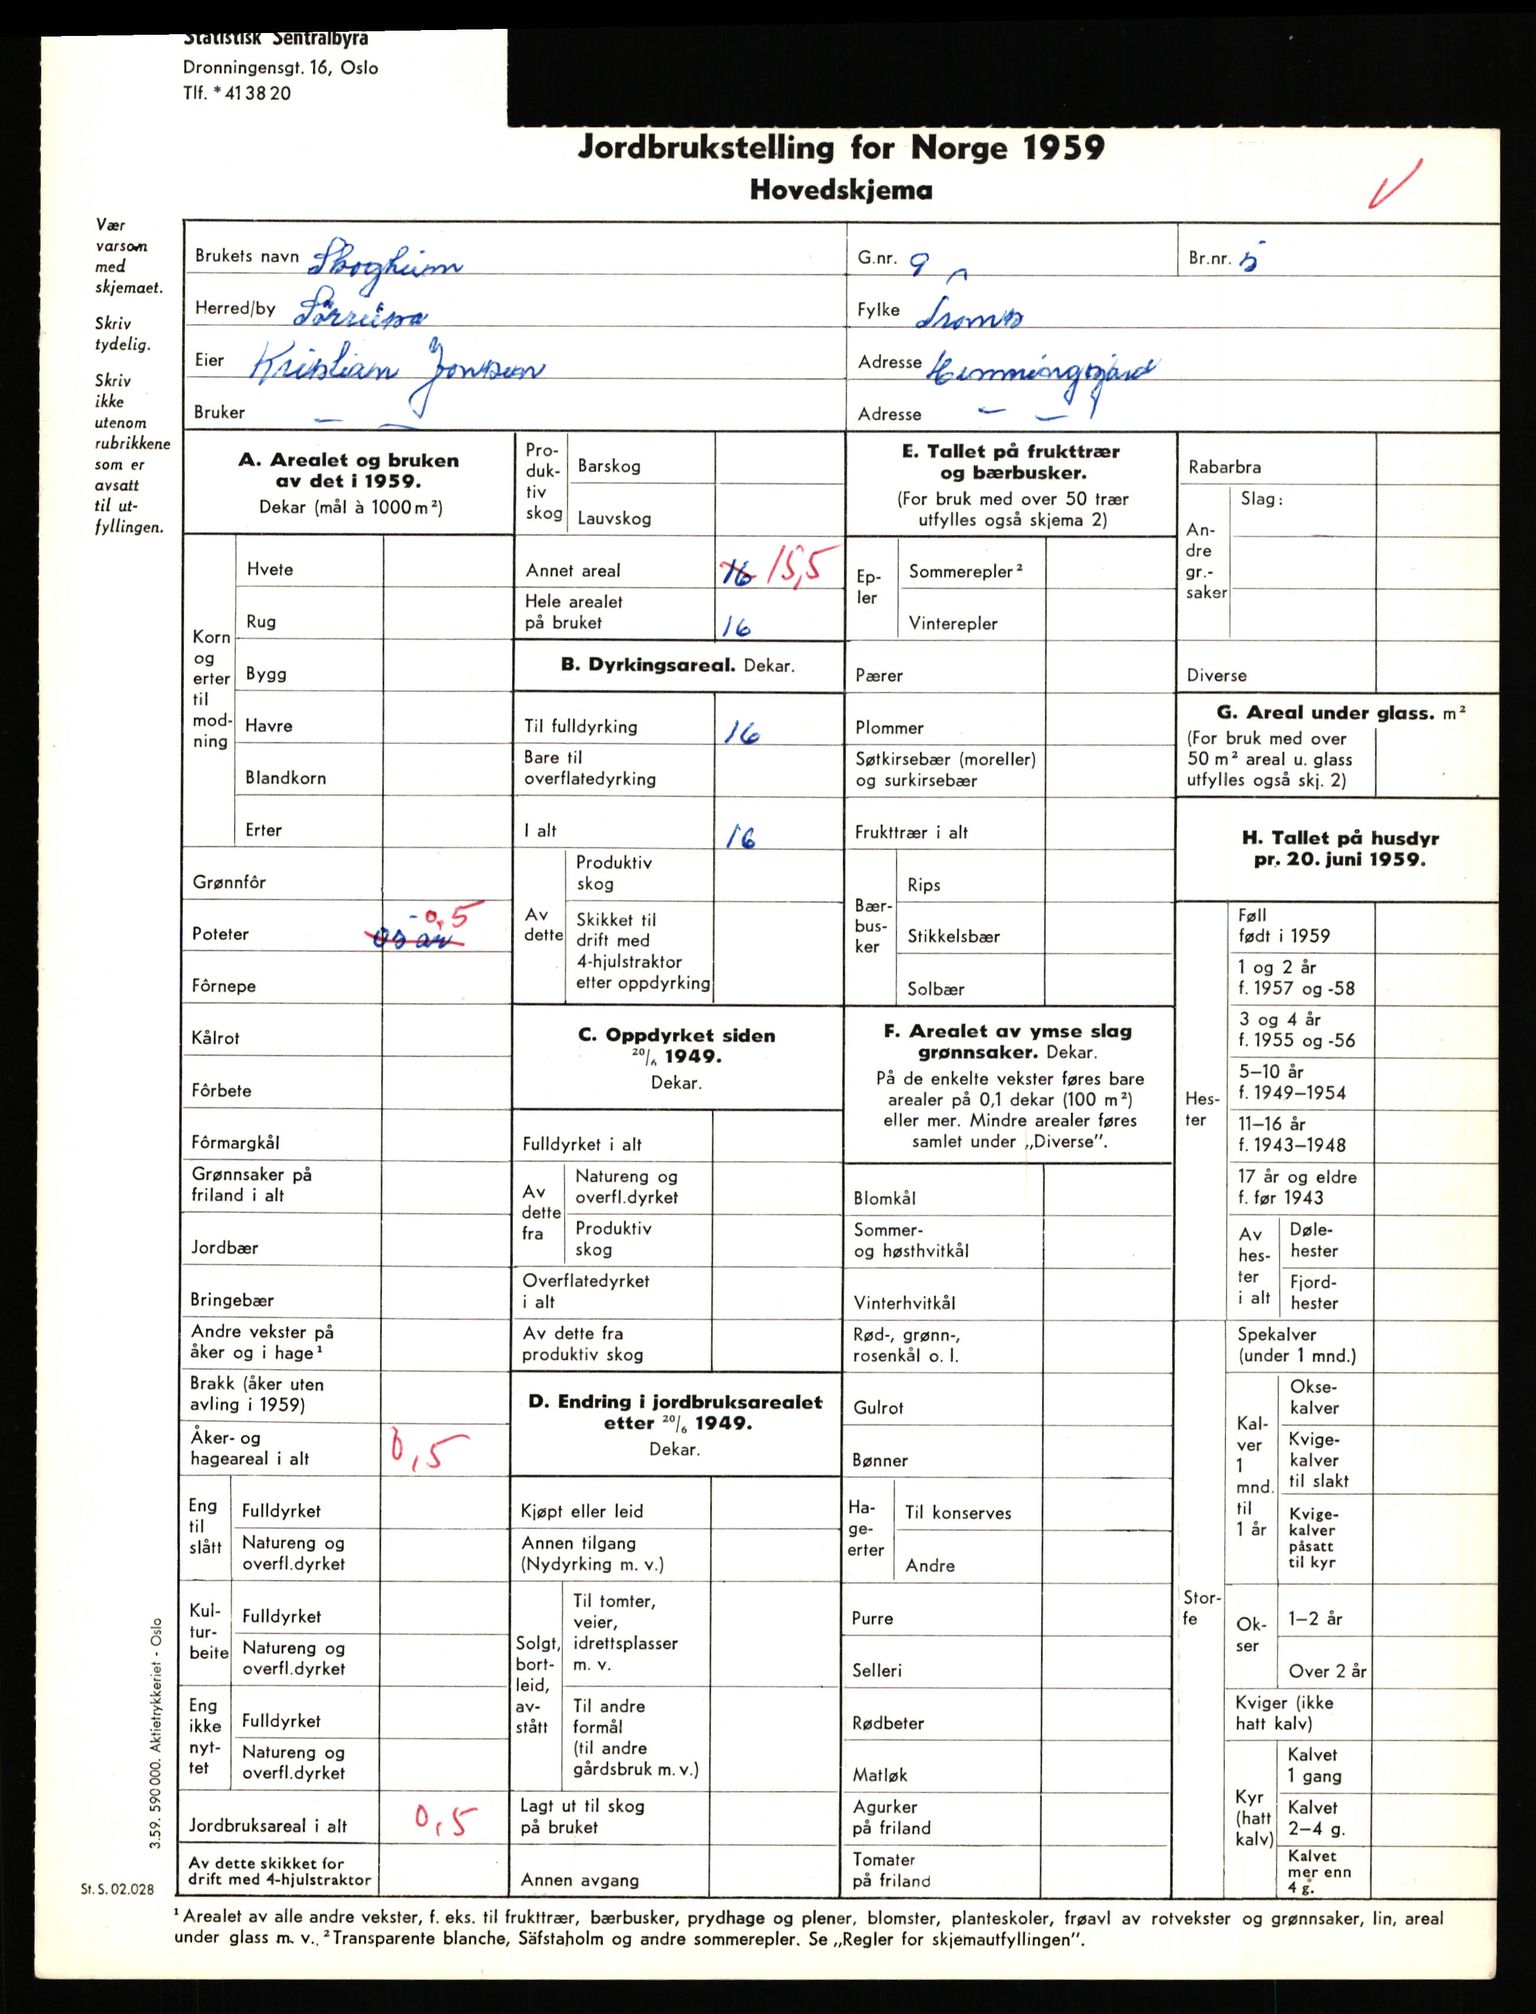 Statistisk Sentralbyrå
Dronningensgt. 16, Oslo
Tlf. * 41 38 20
Jordbrukstelling for Norge 1959
Hovedskjema
Vær
varsom
med
skjemaet.
Skriv
tydelig.
Skriv
ikke
utenom
rubrikkene
som er
avsatt
til ut-
fyllingen.
Brukets navn Skogheim
G.nr. 9
Br.nr. 5
Herred/by Sørreisa
Fylke Troms
Eier Kristian Jonssen
Adresse Hemmingsjord
Bruker — —
Adresse — —
A. Arealet og bruken
av det i 1959.
Dekar (mål à 1000 m²)
Korn
og
erter
til
mod-
ning
Hvete
Rug
Bygg
Havre
Blandkorn
Erter
Grønnfôr
Poteter - 0,5
Fôrnepe
Kålrot
Fôrbete
Fôrmargkål
Grønnsaker på
friland i alt
Jordbær
Bringebær
Andre vekster på
åker og i hage ¹
Brakk (åker uten
avling i 1959)
Åker- og
hageareal i alt 0,5
Eng
til
slått
Fulldyrket
Natureng og
overfl.dyrket
Kul-
tur-
beite
Fulldyrket
Natureng og
overfl.dyrket
Eng
ikke
nyt-
tet
Fulldyrket
Natureng og
overfl.dyrket
Jordbruksareal i alt 0,5
Av dette skikket for
drift med 4-hjulstraktor
Pro-
duk-
tiv
skog
Barskog
Lauvskog
Annet areal 16 15,5
Hele arealet
på bruket 16
B. Dyrkingsareal. Dekar.
Til fulldyrking 16
Bare til
overflatedyrking
I alt 16
Av
dette
Produktiv
skog
Skikket til
drift med
4-hjulstraktor
etter oppdyrking
C. Oppdyrket siden
20/6 1949.
Dekar.
Fulldyrket i alt
Av
dette
fra
Natureng og
overfl.dyrket
Produktiv
skog
Overflatedyrket
i alt
Av dette fra
produktiv skog
D. Endring i jordbruksarealet
etter 20/6 1949.
Dekar.
Kjøpt eller leid
Annen tilgang
(Nydyrking m. v.)
Solgt,
bort-
leid,
av-
stått
Til tomter,
veier,
idrettsplasser
m. v.
Til andre
formål
(til andre
gårdsbruk m. v.)
Lagt ut til skog
på bruket
Annen avgang
E. Tallet på frukttrær
og bærbusker.
(For bruk med over 50 trær
utfylles også skjema 2)
Ep-
ler
Sommerepler ²
Vinterepler
Pærer
Plommer
Søtkirsebær (moreller)
og surkirsebær
Frukttrær i alt
Bær-
bus-
ker
Rips
Stikkelsbær
Solbær
F. Arealet av ymse slag
grønnsaker. Dekar.
På de enkelte vekster føres bare
arealer på 0,1 dekar (100 m²)
eller mer. Mindre arealer føres
samlet under „Diverse”.
Blomkål
Sommer-
og høsthvitkål
Vinterhvitkål
Rød-, grønn-,
rosenkål o. l.
Gulrot
Bønner
Ha-
ge-
erter
Til konserves
Andre
Purre
Selleri
Rødbeter
Matløk
Agurker
på friland
Tomater
på friland
Rabarbra
An-
dre
gr.-
saker
Slag:
Diverse
G. Areal under glass. m²
(For bruk med over
50 m² areal u. glass
utfylles også skj. 2)
H. Tallet på husdyr
pr. 20. juni 1959.
Hes-
ter
Føll
født i 1959
1 og 2 år
f. 1957 og -58
3 og 4 år
f. 1955 og -56
5–10 år
f. 1949–1954
11–16 år
f. 1943–1948
17 år og eldre
f. før 1943
Av
hes-
ter
i alt
Døle-
hester
Fjord-
hester
Stor-
fe
Spekalver
(under 1 mnd.)
Kal-
ver
1
mnd.
til
1 år
Okse-
kalver
Kvige-
kalver
til slakt
Kvige-
kalver
påsatt
til kyr
Ok-
ser
1–2 år
Over 2 år
Kviger (ikke
hatt kalv)
Kyr
(hatt
kalv)
Kalvet
1 gang
Kalvet
2–4 g.
Kalvet
mer enn
4 g.
3.59. 590 000. Aktietrykkeriet - Oslo
St. S. 02.028
¹ Arealet av alle andre vekster, f. eks. til frukttrær, bærbusker, prydhage og plener, blomster, planteskoler, frøavl av rotvekster og grønnsaker, lin, areal
under glass m. v. ² Transparente blanche, Säfstaholm og andre sommerepler. Se „Regler for skjemautfyllingen”.